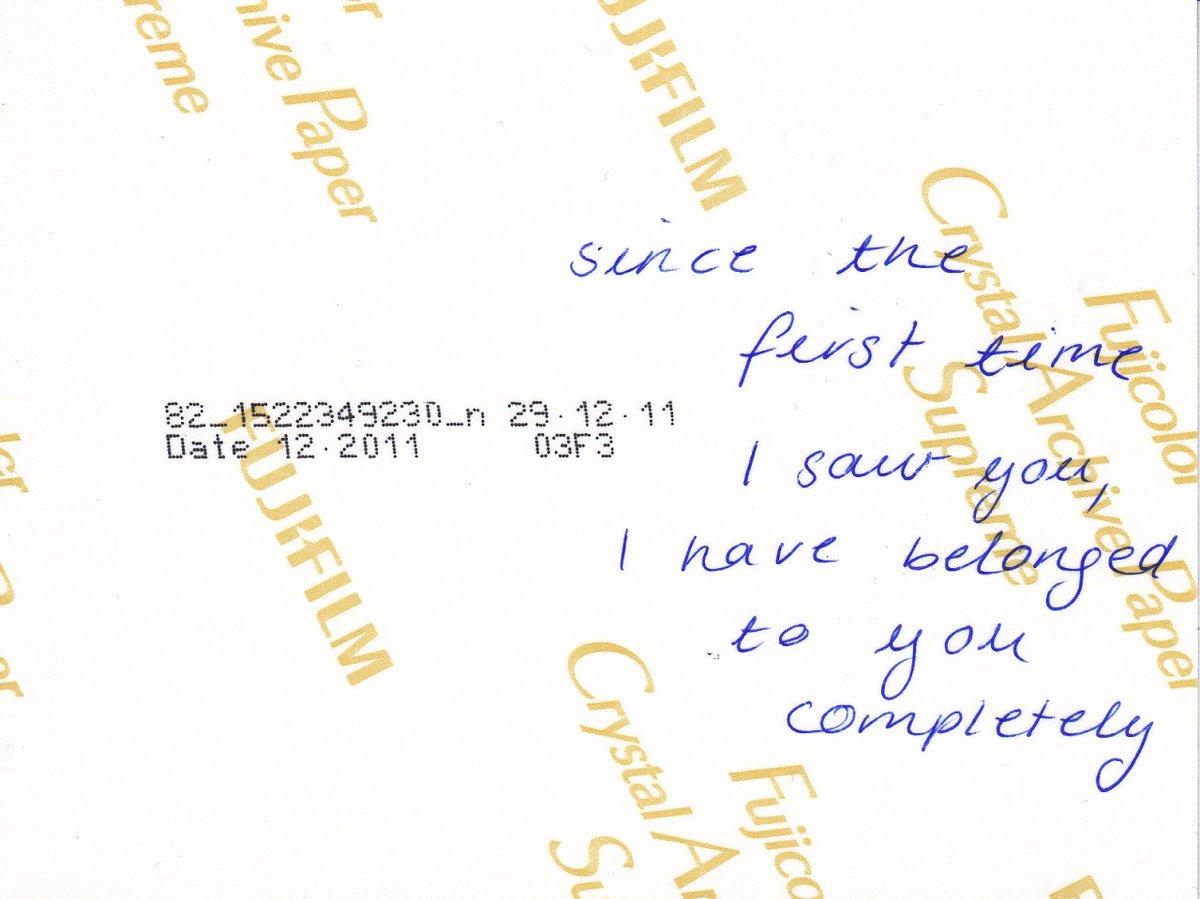 reme
hive Paper
er
FUJIFILM
Crystal Archive Paper
Supreme
Fujicolor
since the
first time
I saw you,
I have belonged
to you
completely
82_1522349230_n 29.12.11
Date 12.2011 03F3
FUJIFILM
Crystal Ar
Su
Fujico